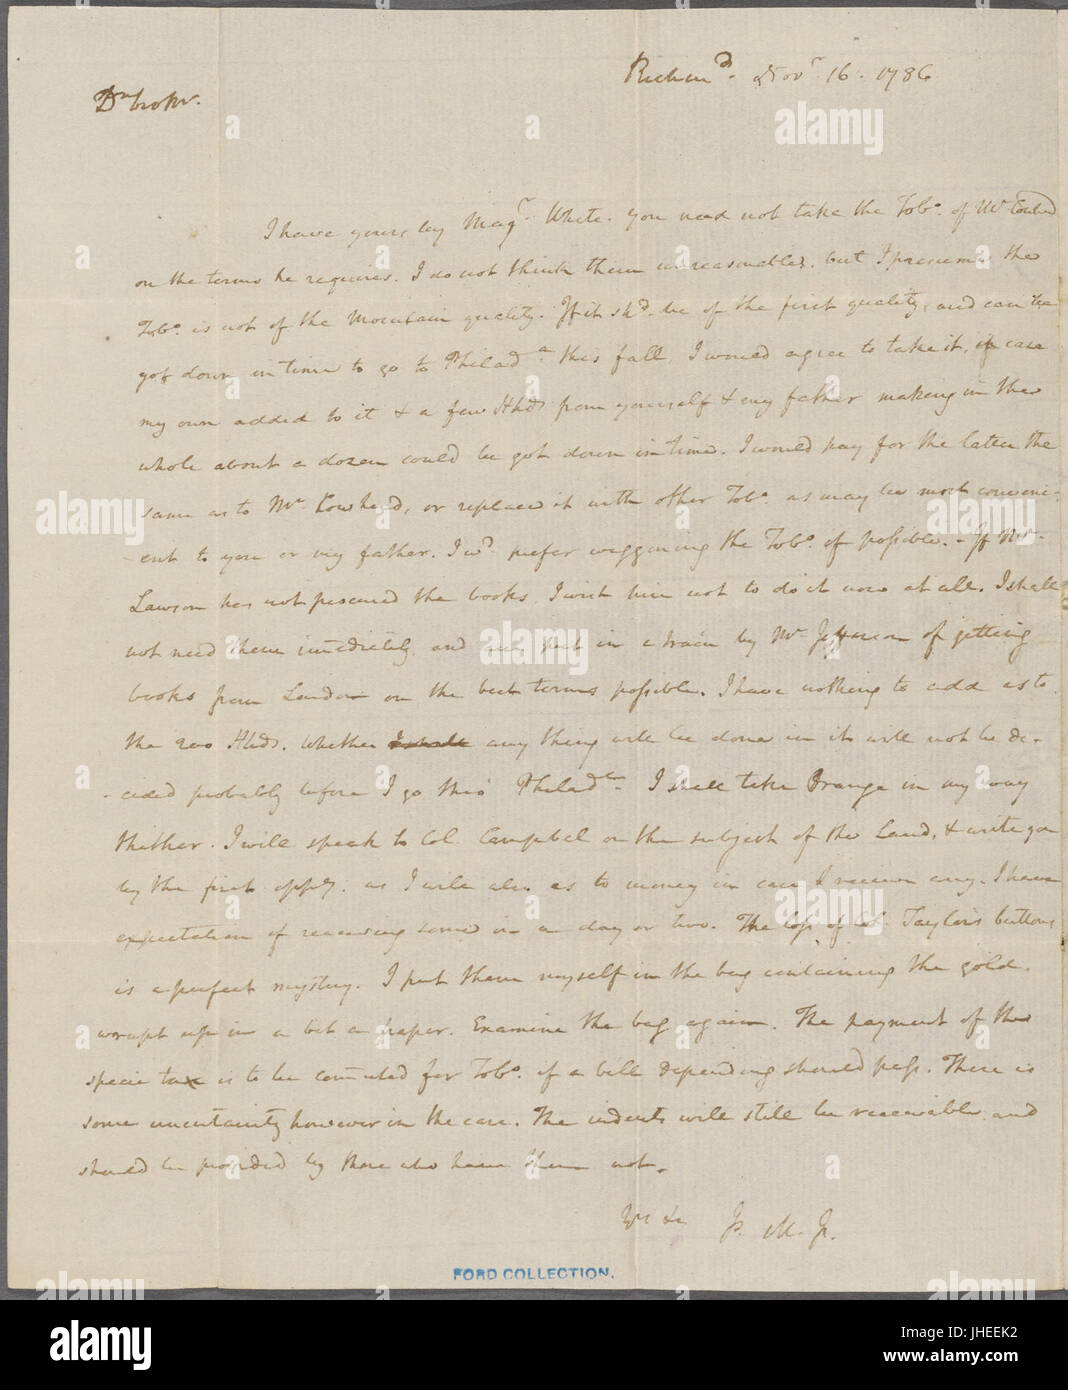 Richmd. Novr. 16. 1786
Dr. brother.
I have yours by Majr. White. you need not take the Tobo. of Mr.
on the terms he requires. I do not think them unreasonable, but I presume the
Tobo. is not of the Mountain quality. If it shd. be of the first quality, and can be
got down in time to go to Philada. this fall, I would agree to take it, in case
my own added to it & a few Hhds from yourself & my father making in the
whole about a dozen could be got down in time. I would pay for the latter the
same as to Mr., or replace it with other Tobo. as may be most conveni-
ent to you or my father. I wd. prefer waggoning the Tobo. if possible. - If Mr.
Lawson has not procured the books I wish him not to do it now at all. I shall
not need them immediately and am put in a train by Mr. Jefferson of getting
books from London on the best terms possible. I have nothing to add as to
the 200 Hhds. Whether any thing will be done in it will not be de-
cided probably before I go to Philada. I shall take Orange in my way
thither. I will speak to Col. Campbel on the subject of the Land, & write you
by the first oppy. as I will also as to money in case I receive any. I have
expectation of receiving some in a day or two. The loss of Col. Taylor's buttons
is a perfect mystery. I put them myself in the bag containing the gold.
wrapt up in a bit a paper. Examine the bag again. The payment of the
specie tax is to be commuted for Tobo. if a bill depending should pass. There is
some uncertainty however in the case. The indents will still be receivable and
should be provided by those who have them not.
Yrs &c Js. M. Jr.
FORD COLLECTION.
alamy stock photo
alamy stock photo
alamy stock photo
alamy stock photo
alamy stock photo
alamy stock photo
alamy stock photo
alamy stock photo
alamy
Image ID: JHEEK2
www.alamy.com